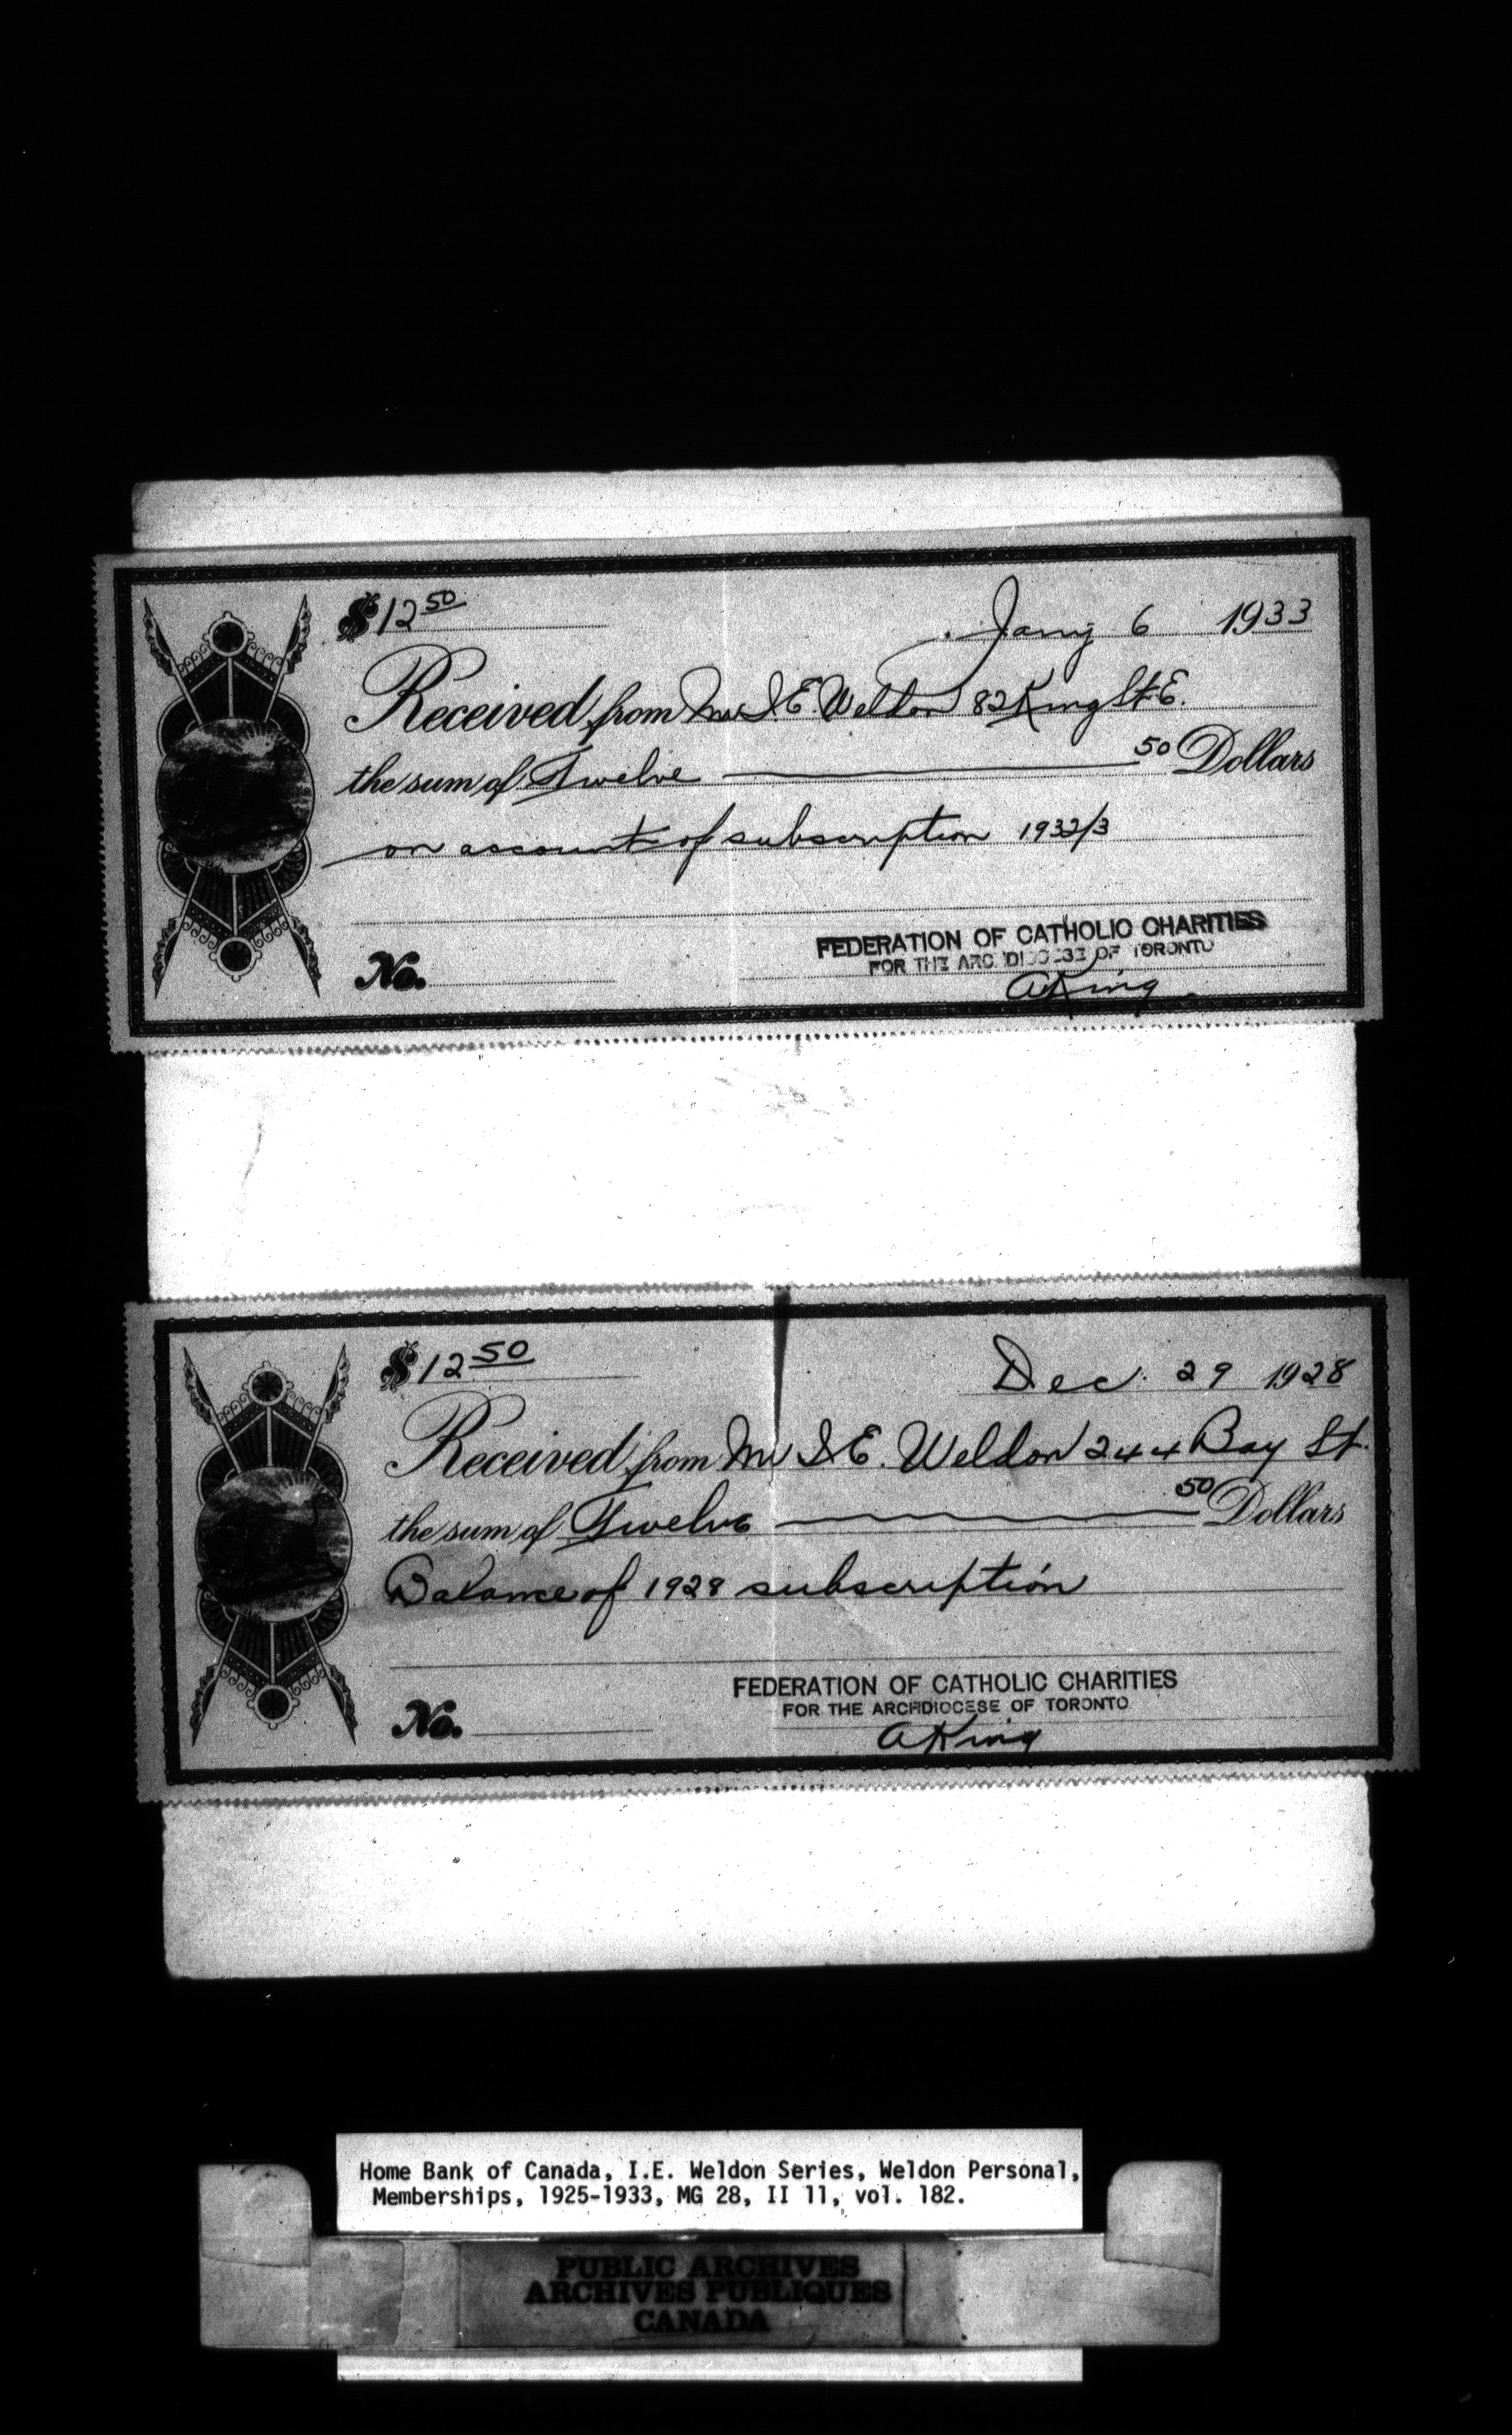 $ 12 50
Jany 6 1933
Received from Mr I.E. Weldon 82 King St. E.
the sum of Twelve 50 Dollars
on account of subscription 1932/3
FEDERATION OF CATHOLIC CHARITIES
FOR THE ARCHDIOCESE OF TORONTO
No. AKing
$ 12 50
Dec. 29 1928
Received from Mr I E. Weldon 244 Bay St.
the sum of Twelve 50 Dollars
Balance of 1928 subscription
FEDERATION OF CATHOLIC CHARITIES
FOR THE ARCHDIOCESE OF TORONTO
No. AKing
Home Bank of Canada, I.E. Weldon Series, Weldon Personal,
Memberships, 1925-1933, MG 28, II 11, vol. 182.
PUBLIC ARCHIVES
ARCHIVES PUBLIQUES
CANADA